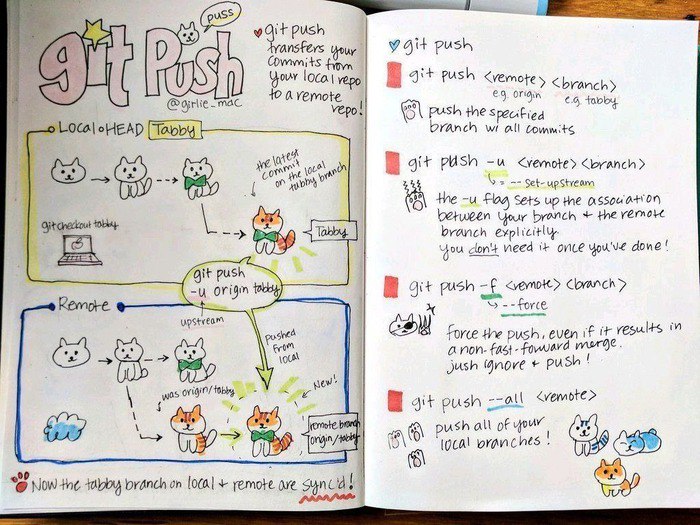 git Push
puss
@girlie_mac
git push
transfers your
commits from
your local repo
to a remote
repo!
Local HEAD Tabby
the latest
commit
on the local
tabby branch
git checkout tabby
Tabby
git push
-u origin tabby
upstream
Remote
pushed
from
local
was origin/tabby
New!
remote branch
origin/tabby
Now the tabby branch on local & remote are sync'd!
git push
git push <remote> <branch>
e.g. origin e.g. tabby
push the specified
branch w/ all commits
git push -u <remote> <branch>
= --set-upstream
the -u flag sets up the association
between your branch & the remote
branch explicitly
you don't need it once you've done!
git push -f <remote> <branch>
--force
force the push, even if it results in
a non-fast-forward merge.
just ignore & push!
git push --all <remote>
push all of your
local branches!